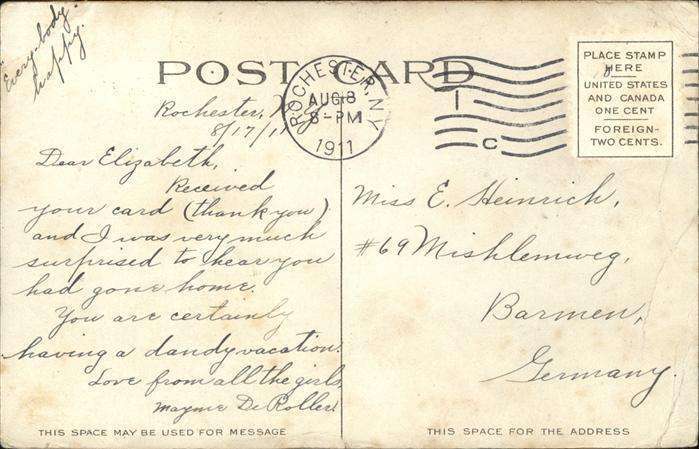 "Everybody
happy."
POST CARD
ROCHESTER, N.Y.
AUG 18
8-PM
1911
1
C
PLACE STAMP
HERE
UNITED STATES
AND CANADA
ONE CENT
FOREIGN-
TWO CENTS.
Rochester, N
8/17/11
Dear Elizabeth,
Received
your card (thank you)
and I was very much
surprised to hear you
had gone home.
You are certainly
having a dandy vacation.
Love from all the girls,
Mayme De Roller
Miss E. Heinrich,
#69 Mishlemweg,
Barmen,
Germany.
THIS SPACE MAY BE USED FOR MESSAGE
THIS SPACE FOR THE ADDRESS